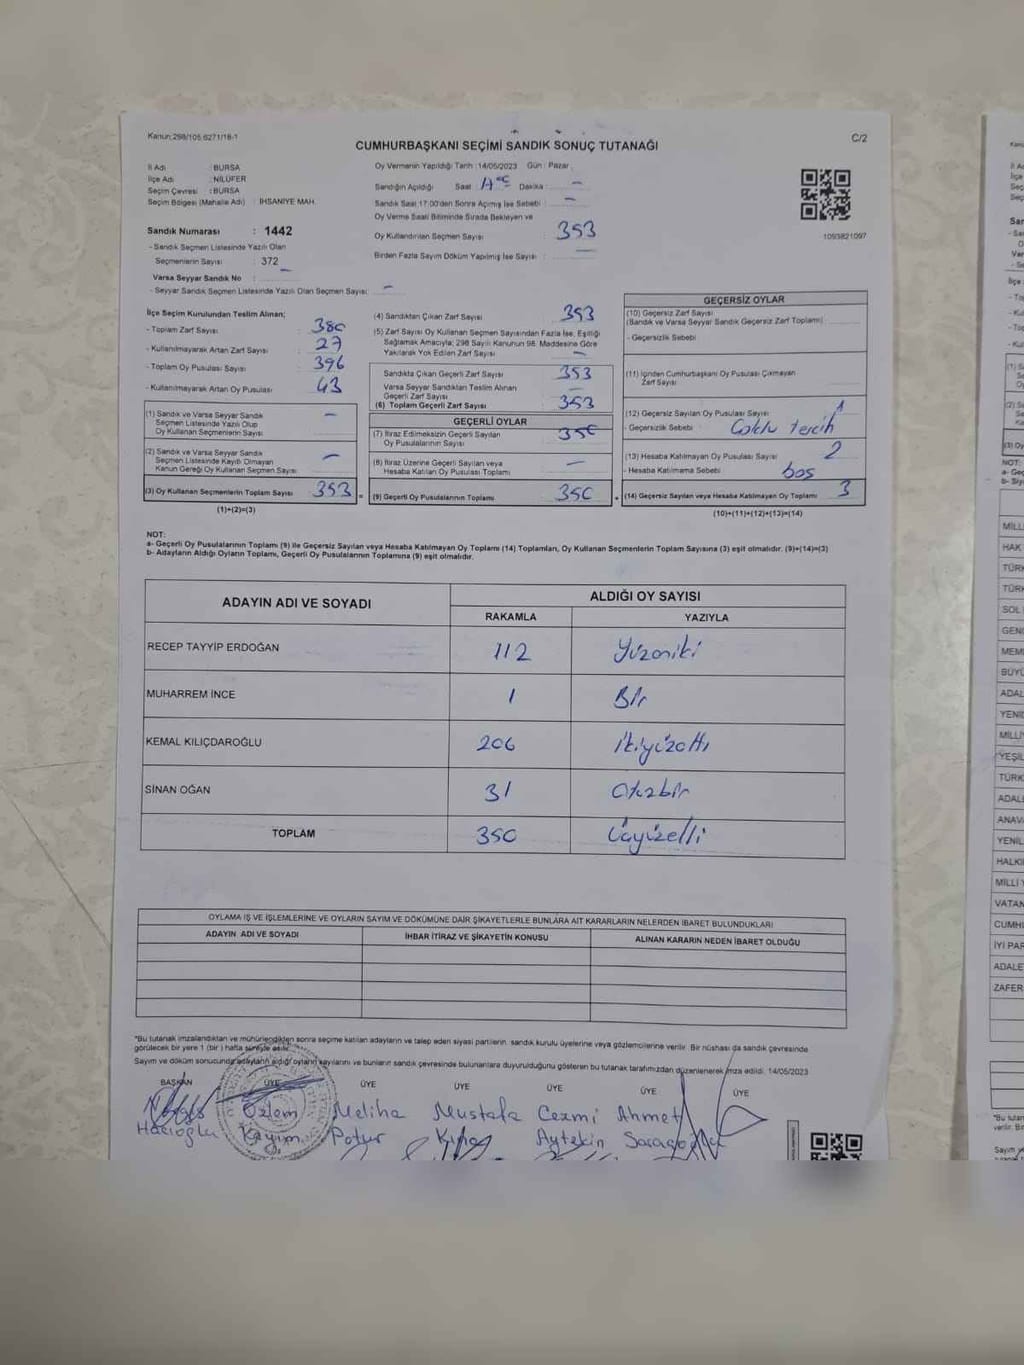 Kanun:298/105,6271/18-1
C/2
CUMHURBAŞKANI SEÇİMİ SANDIK SONUÇ TUTANAĞI
İl Adı : BURSA
İlçe Adı : NİLÜFER
Seçim Çevresi : BURSA
Seçim Bölgesi (Mahalle Adı) : İHSANİYE MAH.
Sandık Numarası : 1442
- Sandık Seçmen Listesinde Yazılı Olan
Seçmenlerin Sayısı : 372
Varsa Seyyar Sandık No : -
- Seyyar Sandık Seçmen Listesinde Yazılı Olan Seçmen Sayısı: -
Oy Vermenin Yapıldığı Tarih :14/05/2023 Gün : Pazar
Sandığın Açıldığı Saat : Dakika : -
Sandık Saat 17:00'den Sonra Açılmış İse Sebebi : -
Oy Verme Saati Bitiminde Sırada Bekleyen ve
Oy Kullandırılan Seçmen Sayısı : 353
Birden Fazla Sayım Döküm Yapılmış İse Sayısı : -
1093821097
İlçe Seçim Kurulundan Teslim Alınan;
- Toplam Zarf Sayısı : 380
- Kullanılmayarak Artan Zarf Sayısı : 27
- Toplam Oy Pusulası Sayısı : 396
- Kullanılmayarak Artan Oy Pusulası : 43
(1) Sandık ve Varsa Seyyar Sandık
Seçmen Listesinde Yazılı Olup
Oy Kullanan Seçmenlerin Sayısı : -
(2) Sandık ve Varsa Seyyar Sandık
Seçmen Listesinde Kayıtlı Olmayan
Kanun Gereği Oy Kullanan Seçmen Sayısı : -
(3) Oy Kullanan Seçmenlerin Toplam Sayısı : 353
(1)+(2)=(3)
(4) Sandıktan Çıkan Zarf Sayısı : 353
(5) Zarf Sayısı Oy Kullanan Seçmen Sayısından Fazla İse, Eşitliği
Sağlamak Amacıyla; 298 Sayılı Kanunun 98. Maddesine Göre
Yakılarak Yok Edilen Zarf Sayısı : -
Sandıkta Çıkan Geçerli Zarf Sayısı : 353
Varsa Seyyar Sandıktan Teslim Alınan
Geçerli Zarf Sayısı : -
(6) Toplam Geçerli Zarf Sayısı : 353
GEÇERLİ OYLAR
(7) İtiraz Edilmeksizin Geçerli Sayılan
Oy Pusulalarının Sayısı : 350
(8) İtiraz Üzerine Geçerli Sayılan veya
Hesaba Katılan Oy Pusulası Toplamı : -
(9) Geçerli Oy Pusulalarının Toplamı : 350
GEÇERSİZ OYLAR
(10) Geçersiz Zarf Sayısı
(Sandık ve Varsa Seyyar Sandık Geçersiz Zarf Toplamı)
- Geçersizlik Sebebi :
(11) İçinden Cumhurbaşkanı Oy Pusulası Çıkmayan
Zarf Sayısı :
(12) Geçersiz Sayılan Oy Pusulası Sayısı : 1
- Geçersizlik Sebebi : Çoklu tercih
(13) Hesaba Katılmayan Oy Pusulası Sayısı : 2
- Hesaba Katılmama Sebebi : boş
(14) Geçersiz Sayılan veya Hesaba Katılmayan Oy Toplamı : 3
(10)+(11)+(12)+(13)=(14)
NOT:
a- Geçerli Oy Pusulalarının Toplamı (9) ile Geçersiz Sayılan veya Hesaba Katılmayan Oy Toplamı (14) Toplamları, Oy Kullanan Seçmenlerin Toplam Sayısına (3) eşit olmalıdır. (9)+(14)=(3)
b- Adayların Aldığı Oyların Toplamı, Geçerli Oy Pusulalarının Toplamına (9) eşit olmalıdır.
ADAYIN ADI VE SOYADI
ALDIĞI OY SAYISI
RAKAMLA YAZIYLA
RECEP TAYYİP ERDOĞAN 112 Yüzoniki
MUHARREM İNCE 1 Bir
KEMAL KILIÇDAROĞLU 206 İkiyüzaltı
SİNAN OĞAN 31 Otuzbir
TOPLAM 350 Üçyüzelli
OYLAMA İŞ VE İŞLEMLERİNE VE OYLARIN SAYIM VE DÖKÜMÜNE DAİR ŞİKAYETLERLE BUNLARA AİT KARARLARIN NELERDEN İBARET BULUNDUKLARI
ADAYIN ADI VE SOYADI İHBAR İTİRAZ VE ŞİKAYETİN KONUSU ALINAN KARARIN NEDEN İBARET OLDUĞU
*Bu tutanak imzalandıktan ve mühürlendikten sonra seçime katılan adayların ve talep eden siyasi partilerin, sandık kurulu üyelerine veya gözlemcilerine verilir. Bir nüshası da sandık çevresinde
görülecek bir yere 1 (bir) hafta süreyle asılır.
Sayım ve döküm sonucunda adayların aldığı oyların sayılarını ve bunların sandık çevresinde bulunanlara duyurulduğunu gösteren bu tutanak tarafımızdan düzenlenerek imza edildi. 14/05/2023
BAŞKAN ÜYE ÜYE ÜYE ÜYE ÜYE ÜYE
Özlem Meliha Mustafa Cezmi Ahmet
Hacıoğlu Kayım Potur Aytekin
MİLLİ
HAK
TÜRK
TÜRK
SOL
GENÇ
MEML
BÜYÜ
ADAL
YENİD
MİLLİ
YEŞİL
TÜRK
ADAL
ANAVA
YENİL
HALKI
MİLLİ Y
VATAN
CUMHU
İYİ PAR
ADALE
ZAFER